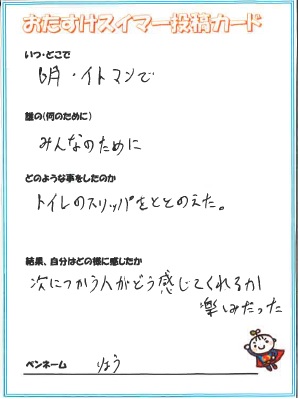 おたすけスイマー投稿カード
いつ・どこで
6月・イトマンで
誰の(何のために)
みんなのために
どのような事をしたのか
トイレのスリッパをととのえた。
結果、自分はどの様に感じたか
次につかう人がどう感じてくれるか
楽しみだった
ペンネーム りょう